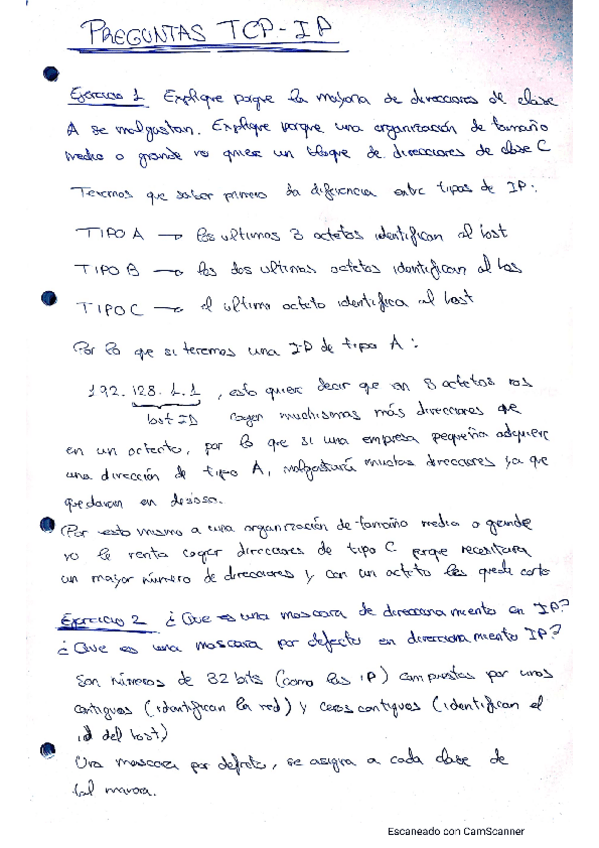 PREGUNTAS TCP-IP
Ejercicio 1 Explique porque la mayoria de direcciones de clase
A se malgastan. Explique porque una organización de tamaño
medio o grande no quiere un bloque de direcciones de clase C
Tenemos que saber primero la diferencia entre tipos de IP:
TIPO A → los ultimos 3 octetos identifican al host
TIPO B → los dos ultimos octetos identifican al hos
TIPO C → el ultimo octeto identifica al host
Por lo que si tenemos una IP de tipo A:
192.128.1.1, esto quiere decir que en 3 octetos nos
host ID cogen muchisimas más direcciones que
en un octecto, por lo que si una empresa pequeña adquiere
una dirección de tipo A, malgastará muchas direcciones ya que
quedaran en desuso.
Por esto mismo a una organización de tamaño medio o grande
no le renta coger direcciones de tipo C porque necesitara
un mayor número de direcciones y con un octeto les queda corto
Ejercicio 2 ¿Que es una mascara de direccionamiento en IP?
¿Que es una mascara por defecto en direccionamiento IP?
Son números de 32 bits (como las IP) compuestas por unos
contiguos (identifican la red) y ceros contiguos (identifican el
id del host)
Una mascara por defecto, se asigna a cada clase de
tal manera.
Escaneado con CamScanner